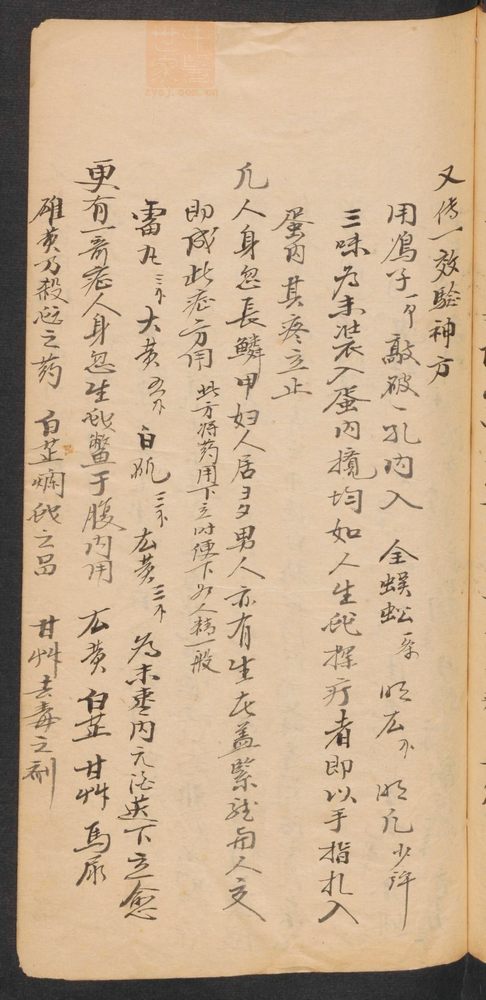 又傳一效驗神方
用鳥子一个敲破一孔內入 全蜈蚣一条 明広 明凡少許
三味為末裝入蛋內攪均如人生蛇探疔者即以手指扎入
蛋內其疼立止
凡人身忽長鱗甲妇人居多男人亦有生在盖緊詵與人交
即成此症方用 此方将药用下立时便下如人精一般
雷丸三 大黃五 白 三 広黃三 為末枣內元酒送下立愈
更有一奇症人身忽生蛇鱉于腹內用 広黃 白芷 甘艸 馬尿
雄黃乃殺蛇之药 白芷爛蛇之品 甘艸去毒之剤
中醫世家
zysj.com.cn